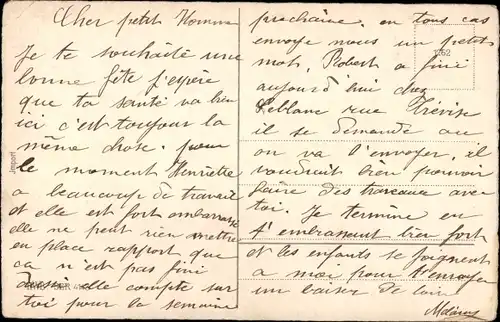 Cher petit Homme
Je te souhaite une
bonne fête j'espère
que ta santé va bien
ici c'est toujours la
même chose. pour
le moment Henriette
a beaucoup de travail
et elle est fort embarrassé
elle ne peut rien mettre
en place rapport que
ça n'est pas fini
elle compte sur
toi pour la semaine
prochaine. en tous cas
envoye nous un petit
mot, Robert a fini
aujourd'hui chez
Leblanc rue Trévise
il se demande où
on va l'envoyer, il
voudrait bien pouvoir
faire des travaux avec
toi. Je termine en
t'embrassant bien fort
et les enfants se joignent
a moi pour t'envoyer
un baiser de loin
Import